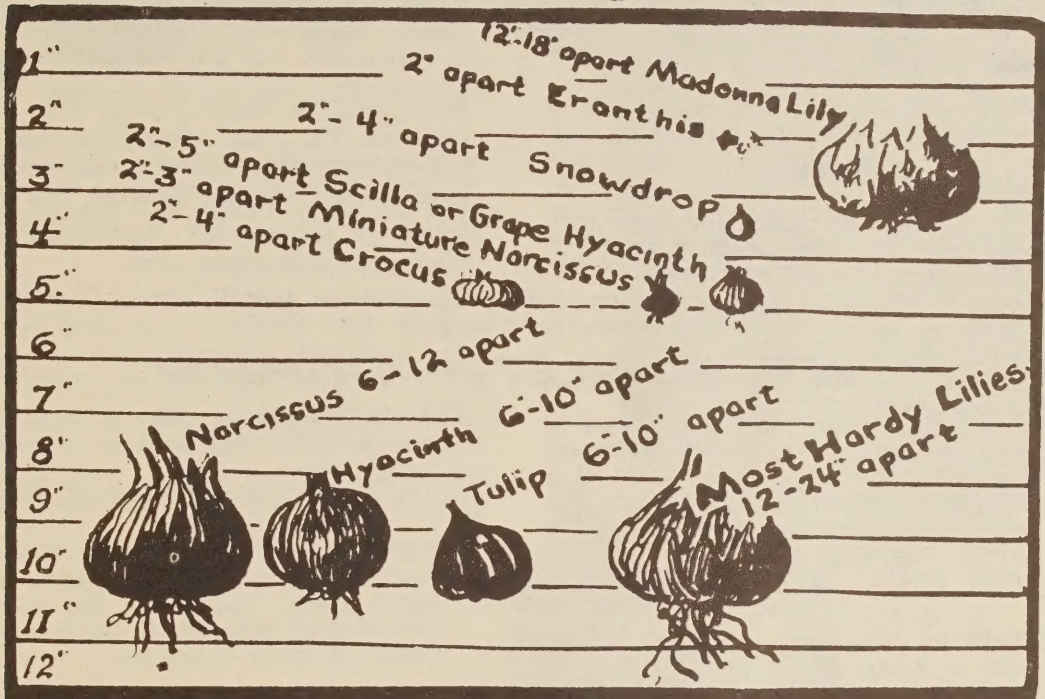 1"
2"
3"
4"
5"
6"
7"
8"
9"
10"
11"
12"
12"-18" apart Madonna Lily
2" apart Eranthis
2"-4" apart Snowdrop
2"-5" apart Scilla or Grape Hyacinth
2"-3" apart Miniature Narcissus
2"-4" apart Crocus
Narcissus 6-12 apart
Hyacinth 6-10" apart
Tulip 6-10" apart
Most Hardy Lilies
12-24" apart